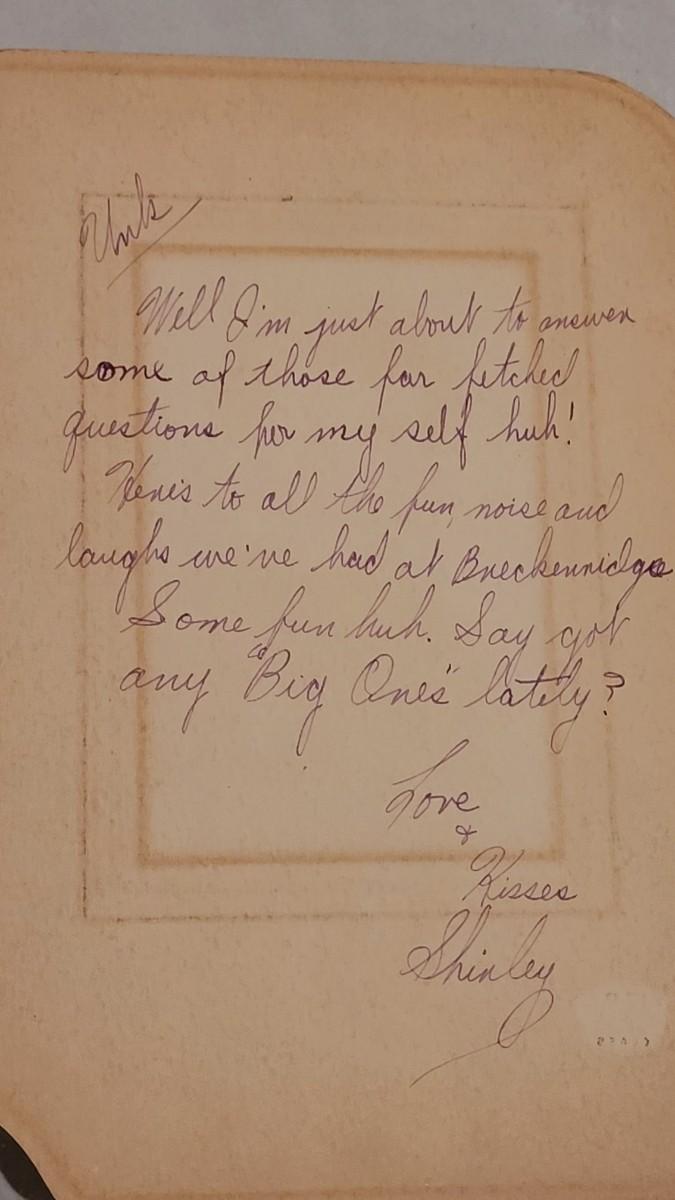 Unk
Well I'm just about to answer
some of those far fetched
questions for my self huh!
Here's to all the fun, noise and
laughs we've had at Breckenridge
Some fun huh. Say got
any "Big One's" lately?
Love
&
Kisses
Shirley